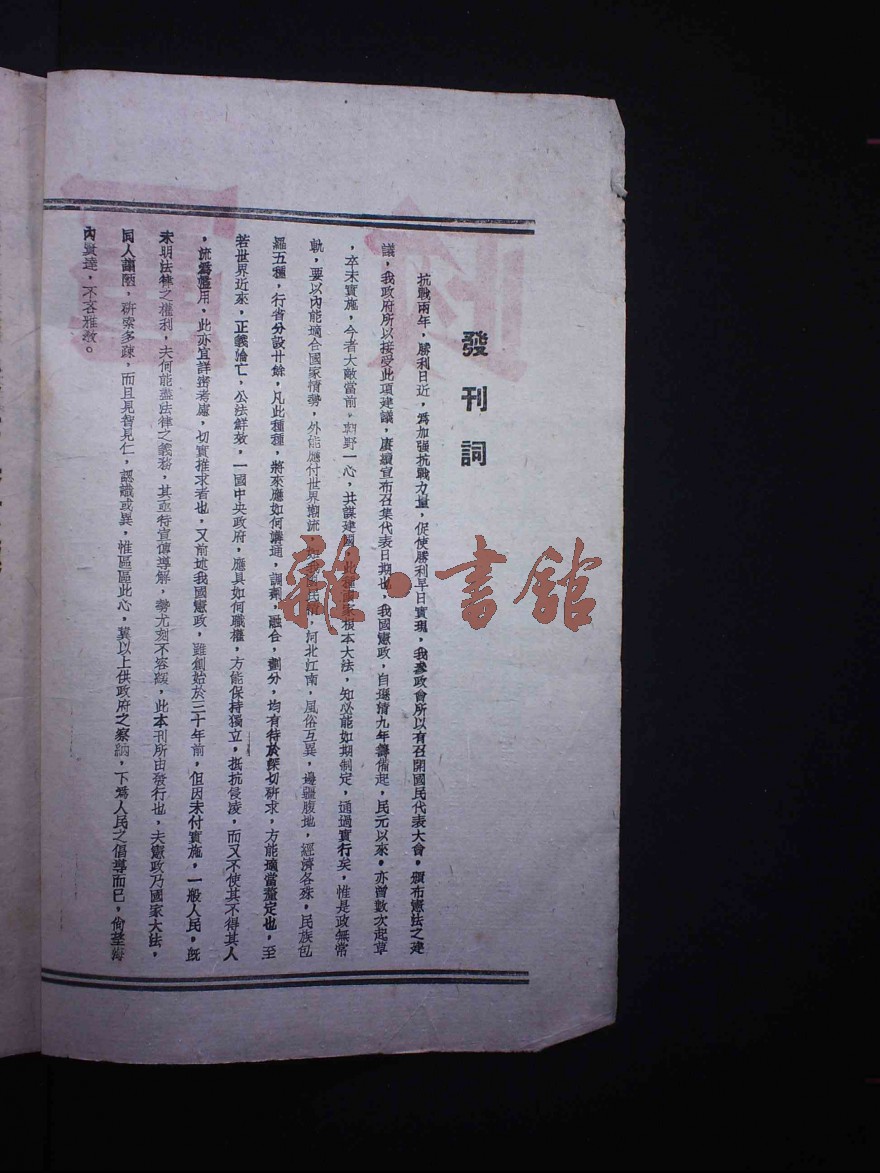 發刊詞
抗戰兩年，勝利日近，爲加強抗戰力量，促使勝利早日實現，我參政會所以有召開國民代表大會，頒布憲法之建
議，我政府所以接受此項建議，賡續宣布召集代表日期也，我國憲政，自遜清九年籌備起，民元以來，亦曾數次起草
，卒未實施，今者大敵當前，朝野一心，共謀建國，此種國家根本大法，知必能如期制定，通過實行矣，惟是政無常
軌，要以內能適合國家情勢，外能應付世界潮流，如我國民情，河北江南，風俗互異，邊疆腹地，經濟各殊，民族包
羅五種，行省分設廿餘，凡此種種，將來應如何溝通，調劑，融合，劃分，均有待於深切研求，方能適當釐定也，至
若世界近來，正義淪亡，公法鮮效，一國中央政府，應具如何職權，方能保持獨立，抵抗侵凌，而又不使其不得其人
，流爲濫用，此亦宜詳密考慮，切實推求者也，又前述我國憲政，雖創始於三十年前，但因未付實施，一般人民，既
未明法律之權利，夫何能盡法律之義務，其亟待宣傳導解，勢尤刻不容緩，此本刊所由發行也，夫憲政乃國家大法，
同人謭陋，研索多疎，而且見智見仁，認識或異，惟區區此心，冀以上供政府之察納，下爲人民之倡導而已，尚望海
內賢達，不吝雅敎。
雜·書館